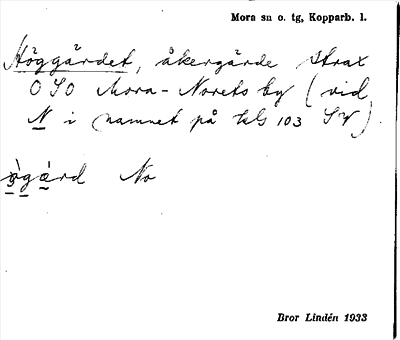 Mora sn o. tg, Kopparb. l.
Höggärdet, åkergärde strax
OSO Mora-Norets by (vid
N i namnet på kbl 103 SV)
ògæ̀rd No
Bror Lindén 1933